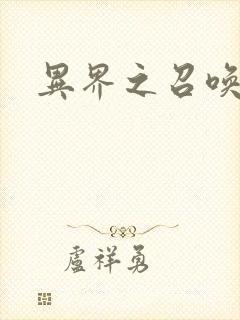 異界之召喚
盧祥勇